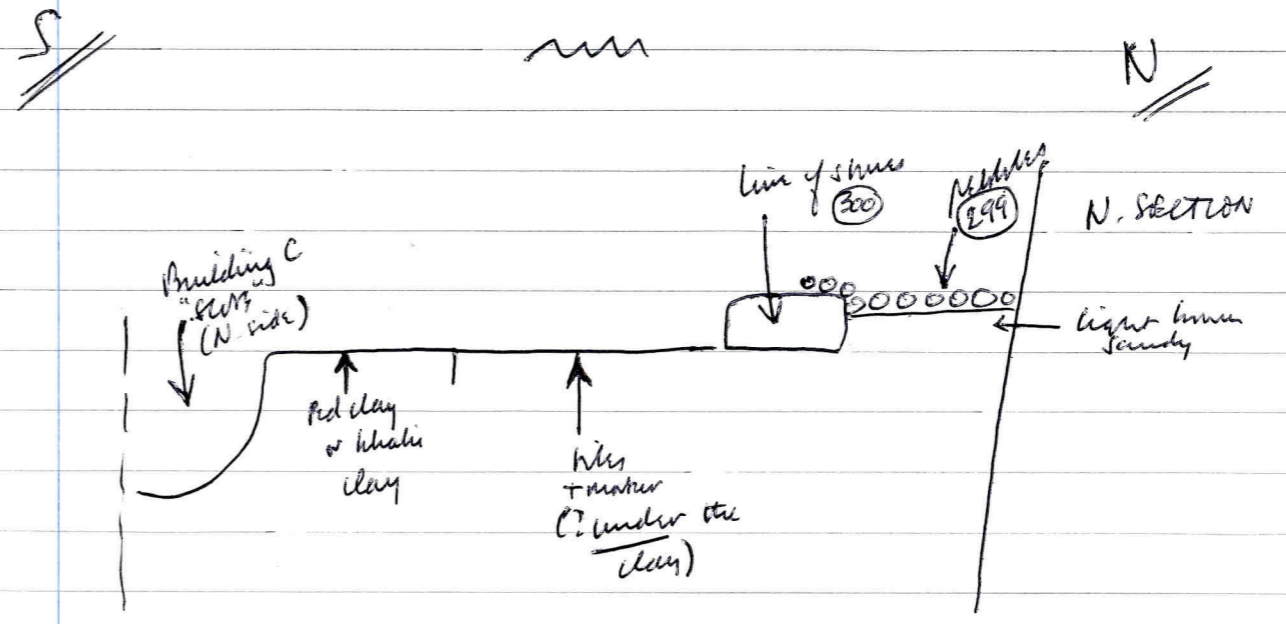 S
N
Line of stones
300
pebbles
299
N. SECTION
Building C
(N. side)
light brown
sandy
Red clay
or khaki
clay
tiles
+ mortar
(? under the
clay)